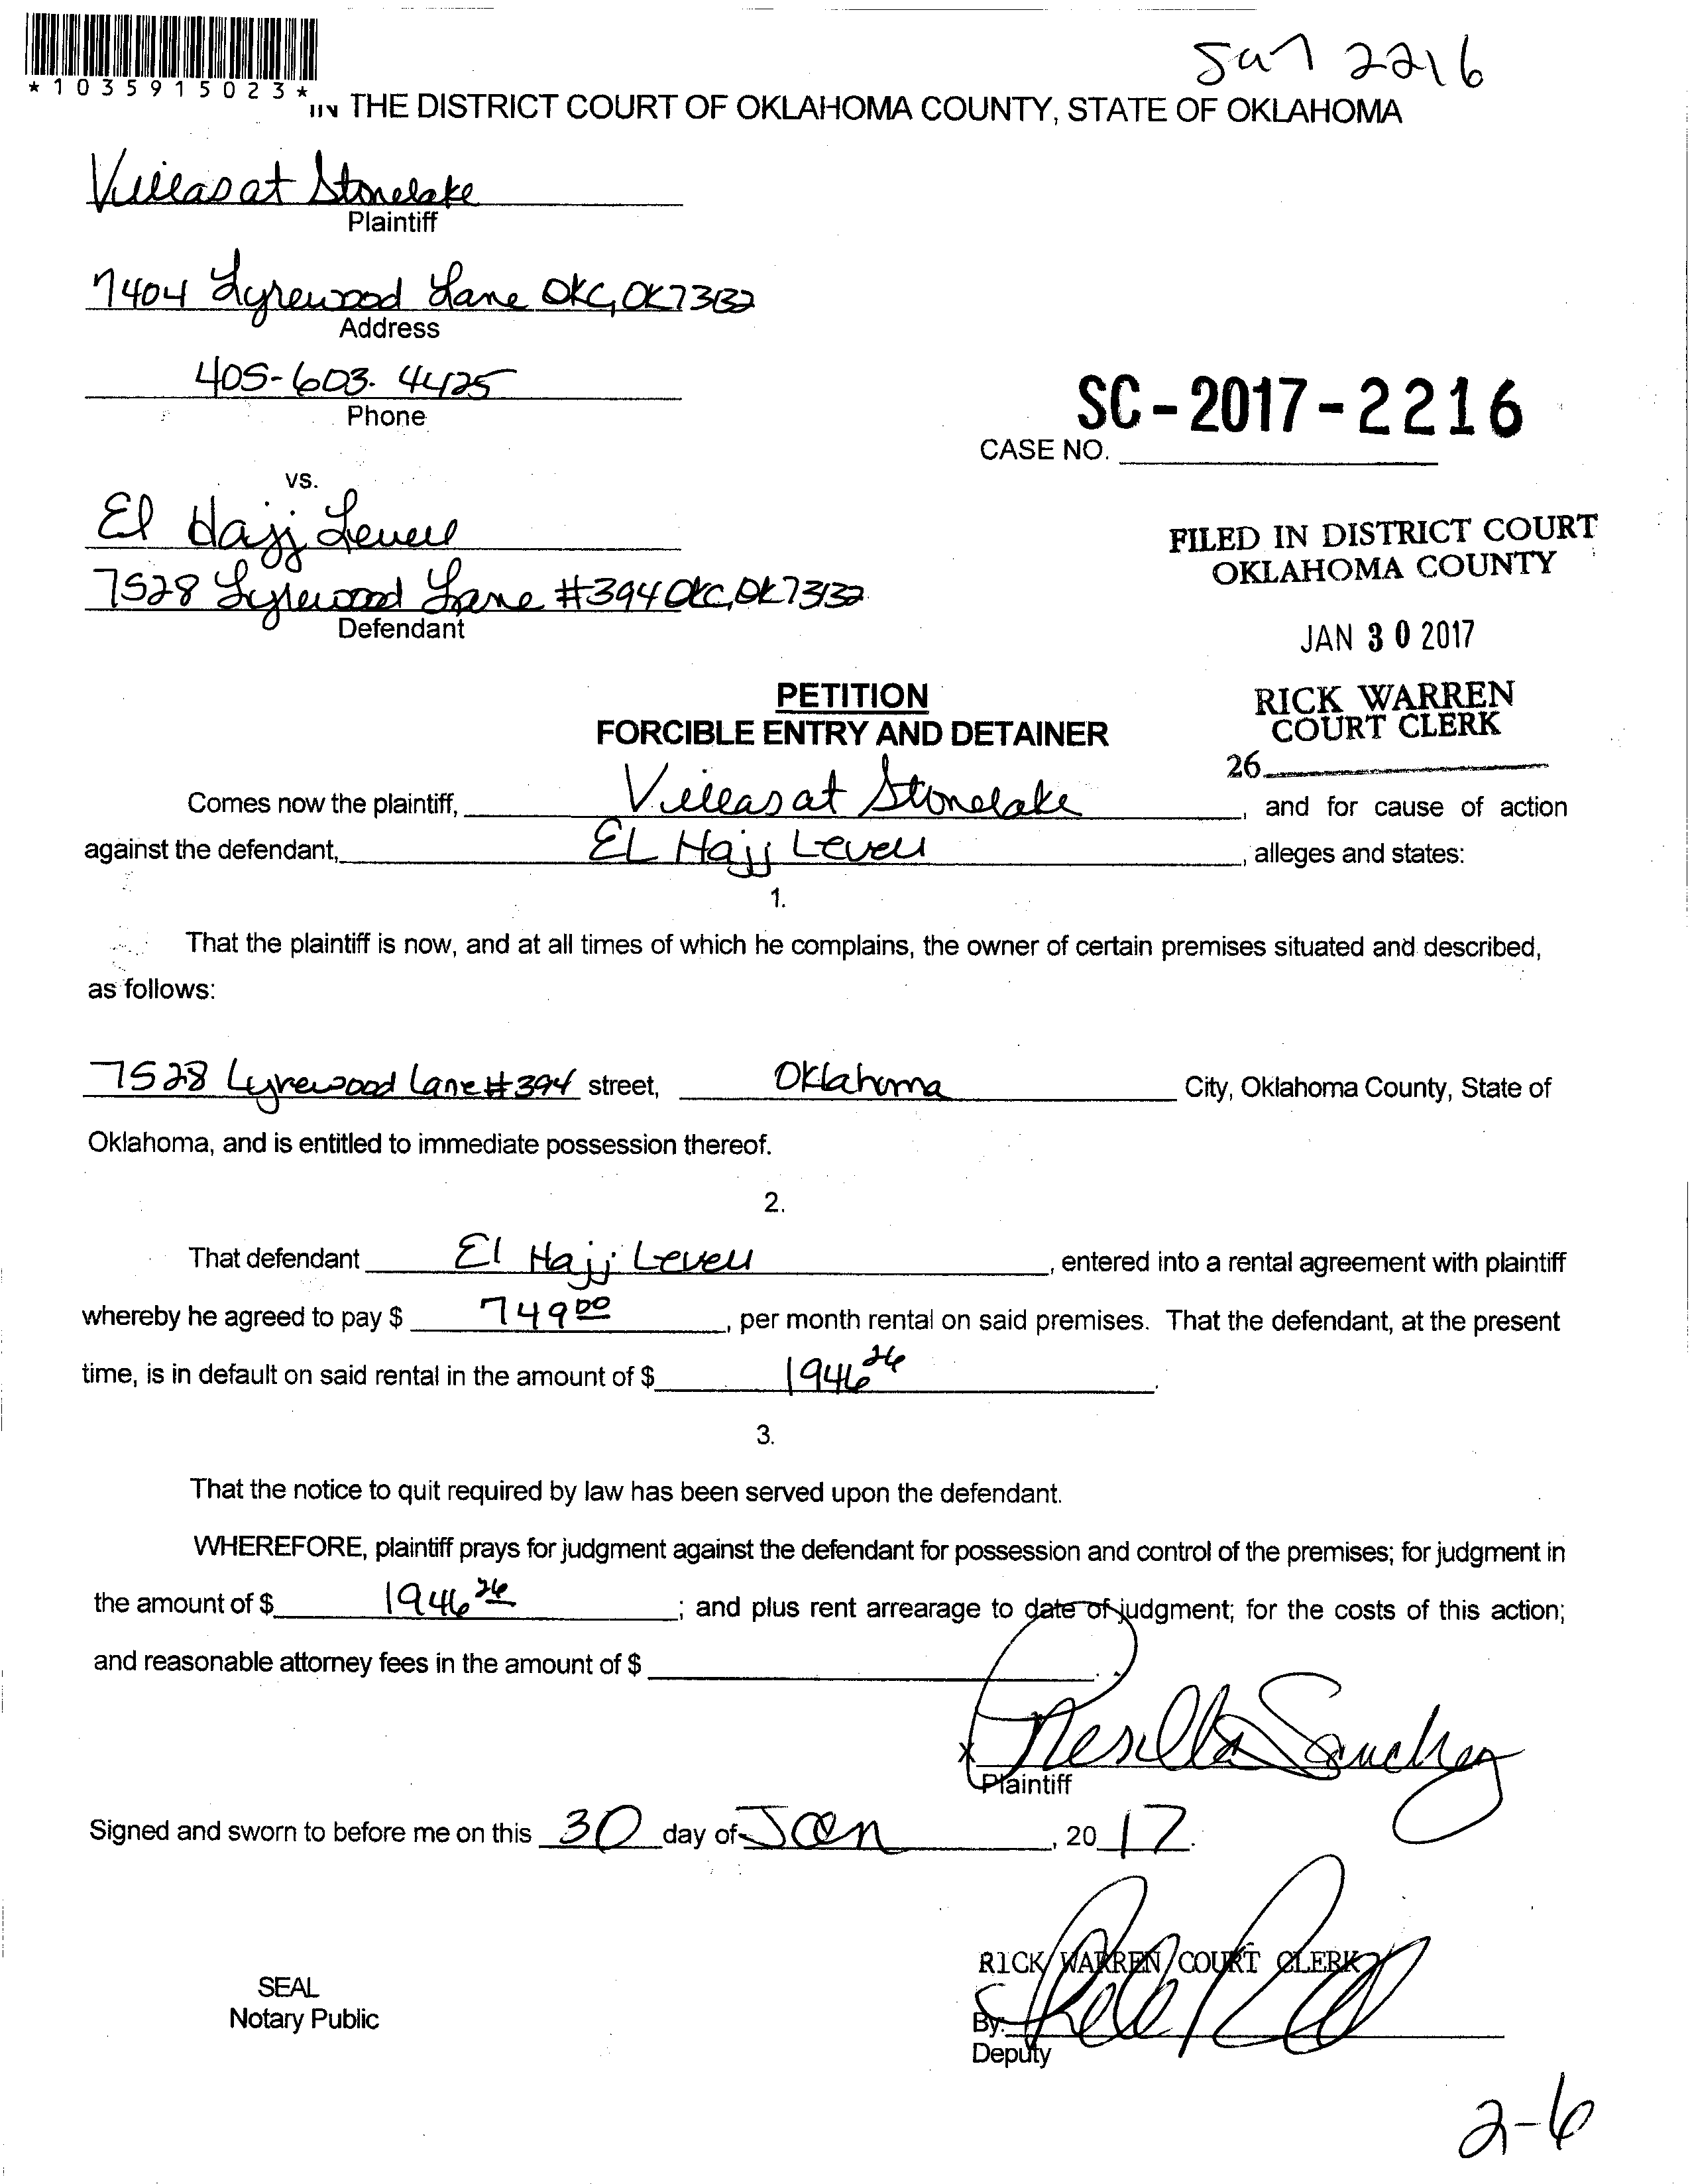 Jan 2216
*1035915023*
IN THE DISTRICT COURT OF OKLAHOMA COUNTY, STATE OF OKLAHOMA
Villas at Stonelake
Plaintiff
7404 Lyrewood Lane OKC, OK 73132
Address
405-603-4425
Phone
SC-2017-2216
CASE NO.
vs.
El Hajj Levell
7528 Lyrewood Lane #394 OKC, OK 73132
Defendant
FILED IN DISTRICT COURT
OKLAHOMA COUNTY
JAN 30 2017
RICK WARREN
COURT CLERK
26
PETITION
FORCIBLE ENTRY AND DETAINER
Comes now the plaintiff, Villas at Stonelake, and for cause of action
against the defendant, EL Hajj Levell, alleges and states:
1.
That the plaintiff is now, and at all times of which he complains, the owner of certain premises situated and described,
as follows:
7528 Lyrewood Lane #394 street, Oklahoma City, Oklahoma County, State of
Oklahoma, and is entitled to immediate possession thereof.
2.
That defendant El Hajj Levell, entered into a rental agreement with plaintiff
whereby he agreed to pay $ 749 00, per month rental on said premises. That the defendant, at the present
time, is in default on said rental in the amount of $ 1946 26.
3.
That the notice to quit required by law has been served upon the defendant.
WHEREFORE, plaintiff prays for judgment against the defendant for possession and control of the premises; for judgment in
the amount of $ 1946 26; and plus rent arrearage to date of judgment; for the costs of this action;
and reasonable attorney fees in the amount of $
x Presilla Sanchez
Plaintiff
Signed and sworn to before me on this 30 day of Jan, 2017.
RICK WARREN COURT CLERK
SEAL
Notary Public
By:
Deputy
2-6